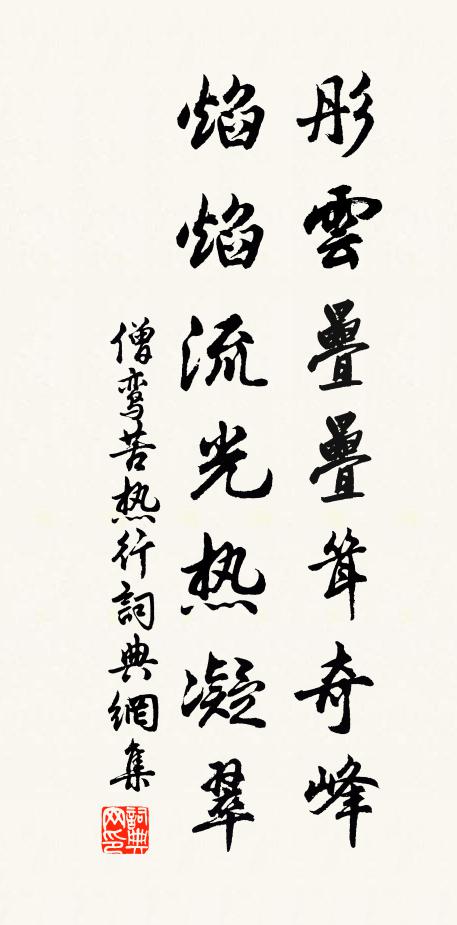 彤雲疊疊耸奇峰
焰焰流光热凝翠
僧鸾苦热行詞典網集
詞典网印